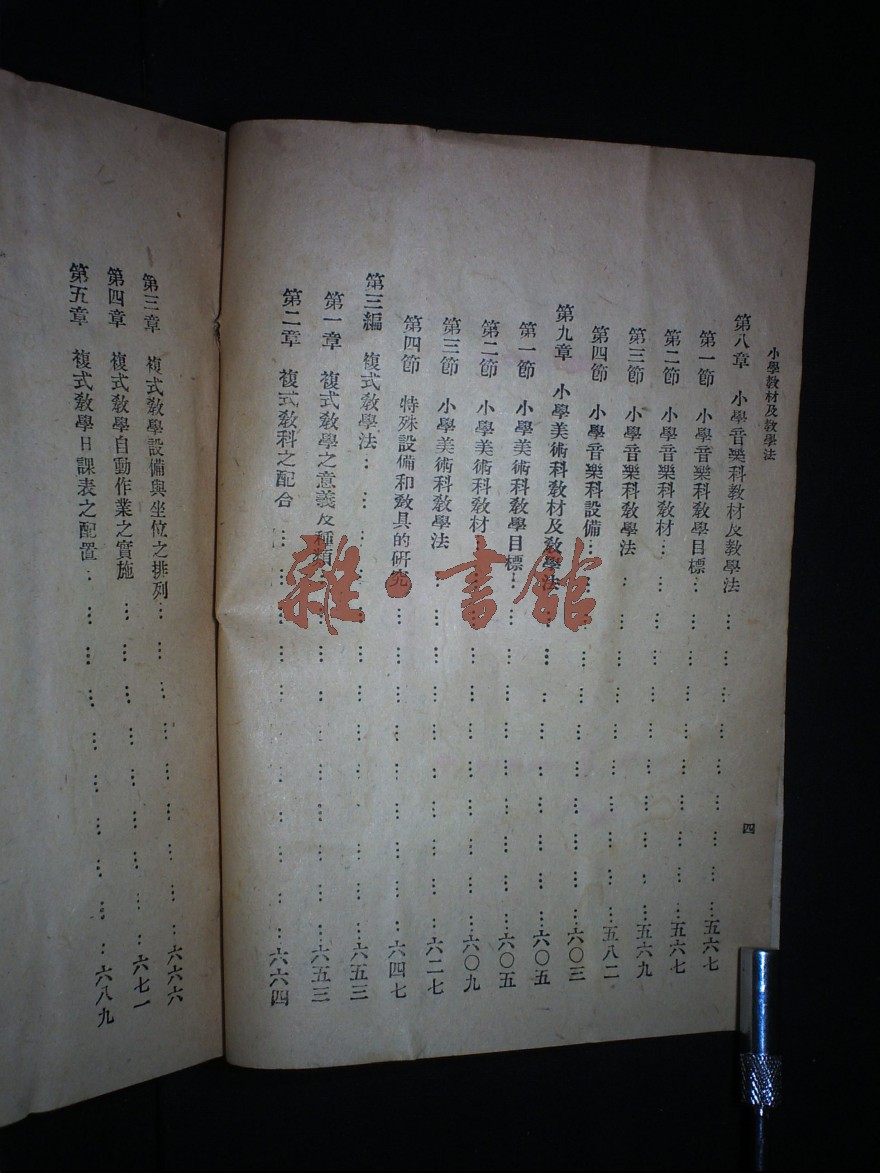 小學教材及教學法
四
第八章 小學音樂科教材及教學法……………………五六七
第一節 小學音樂科教學目標……………………五六七
第二節 小學音樂科教材……………………五六九
第三節 小學音樂科教學法……………………五八二
第四節 小學音樂科設備……………………六〇三
第九章 小學美術科教材及教學法……………………六〇五
第一節 小學美術科教學目標……………………六〇五
第二節 小學美術科教材……………………六〇九
第三節 小學美術科教學法……………………六二七
第四節 特殊設備和教具的研究……………………六四七
第三編 複式教學法……………………六五三
第一章 複式教學之意義及種類……………………六五三
第二章 複式教科之配合……………………六六四
第三章 複式教學設備與坐位之排列……………………六六六
第四章 複式教學自動作業之實施……………………六七一
第五章 複式教學日課表之配置……………………六八九
雜·書館